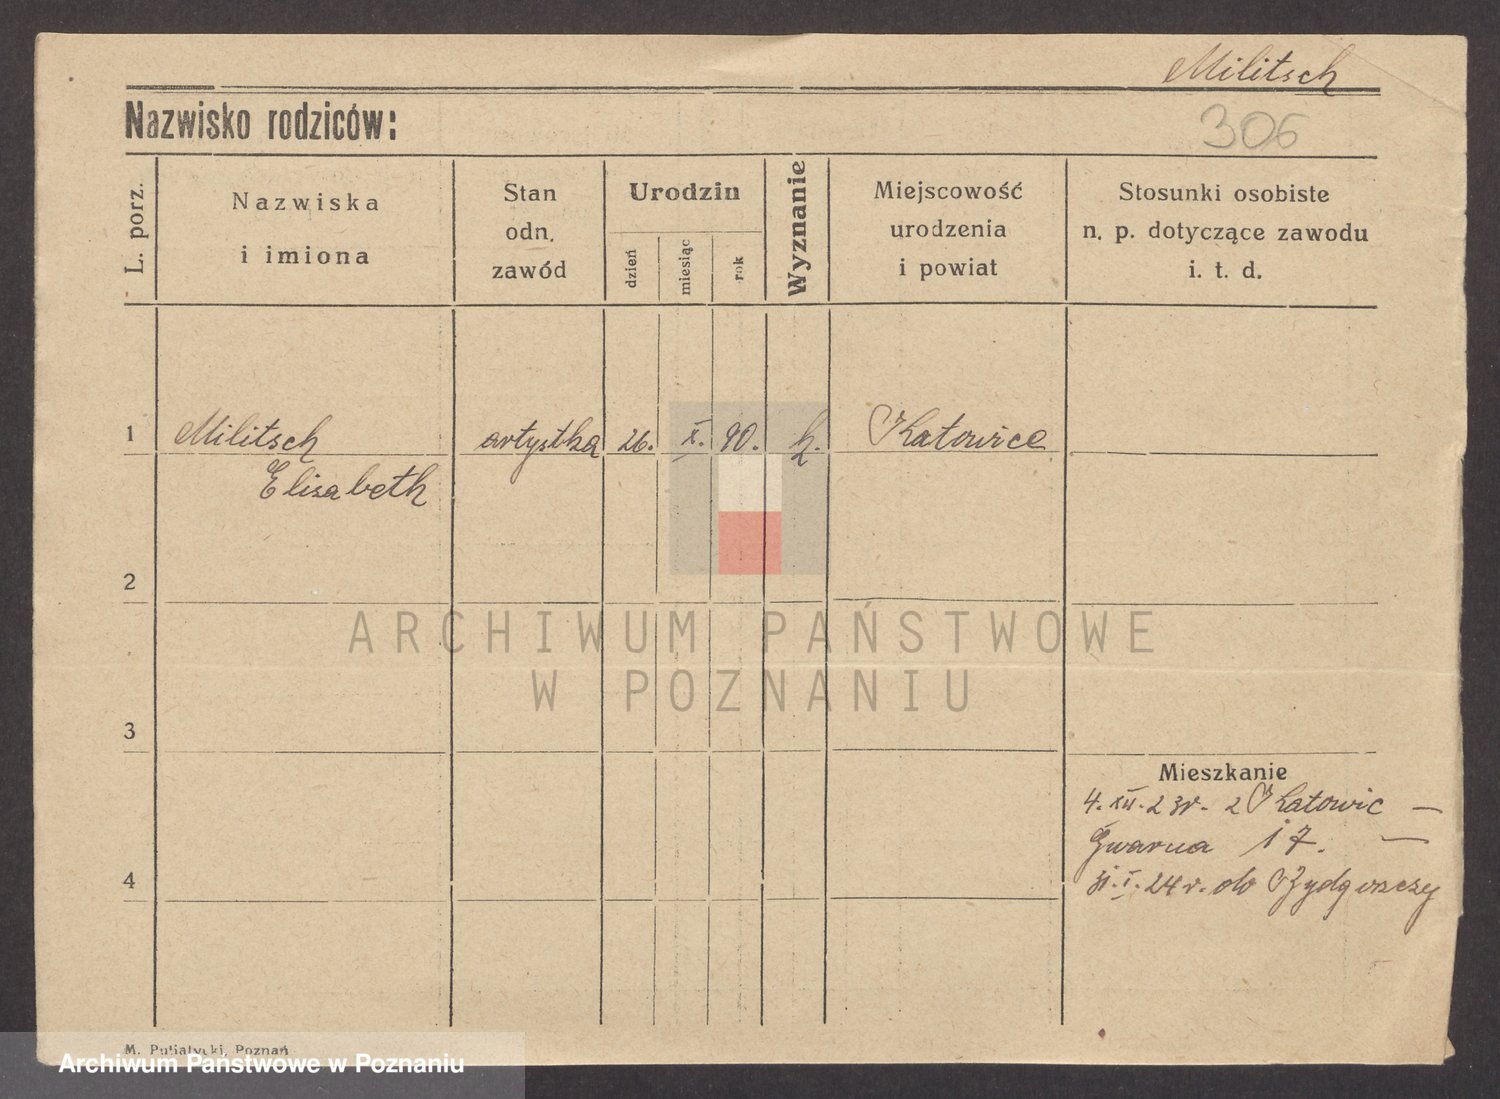 Militsch
Nazwisko rodziców:
306
L. porz.
Nazwiska
i imiona
Stan
odn.
zawód
Urodzin
dzień
miesiąc
rok
Wyznanie
Miejscowość
urodzenia
i powiat
Stosunki osobiste
n. p. dotyczące zawodu
i. t. d.
1 Militsch artystka 26. X. 90. k. Katowice
Elisabeth
2
ARCHIWUM PAŃSTWOWE
W POZNANIU
3
Mieszkanie
4. XII. 23r. z Katowic —
Gwarna 17. —
4
31. I. 24 r. do Bydgoszczy
M. Putiatycki, Poznań
Archiwum Państwowe w Poznaniu